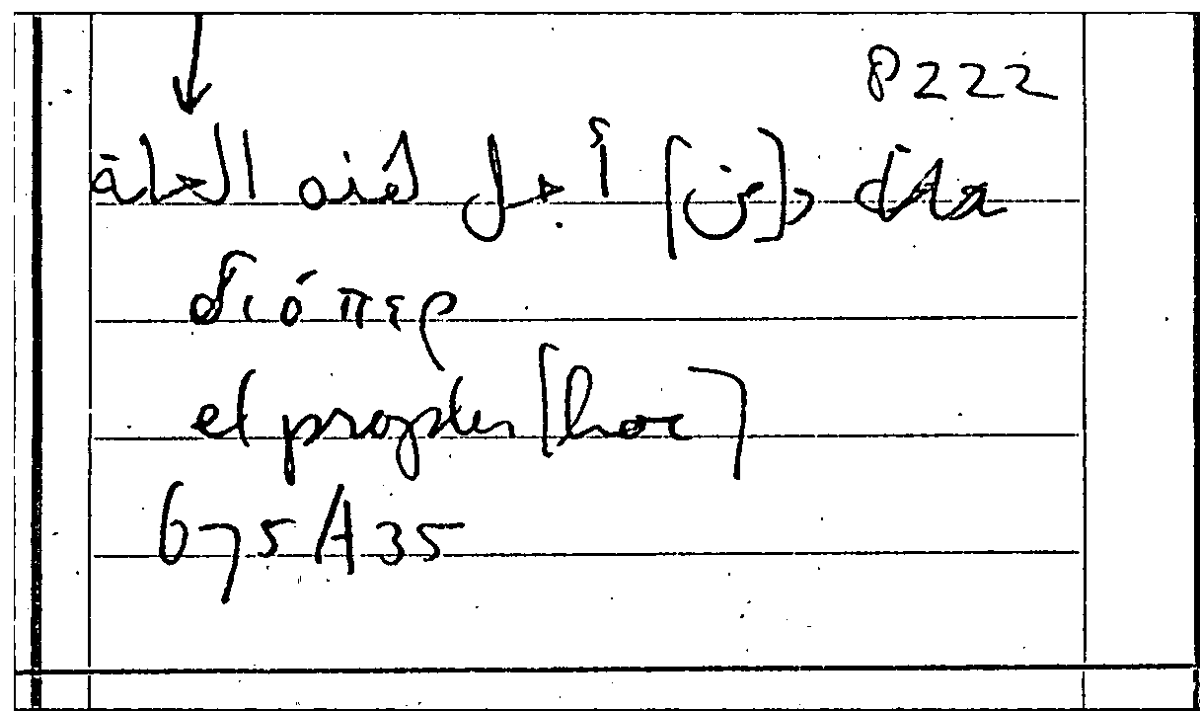 P222
و[من] أجل هذه العلة
διόπερ
et propter [hoc]
675A35